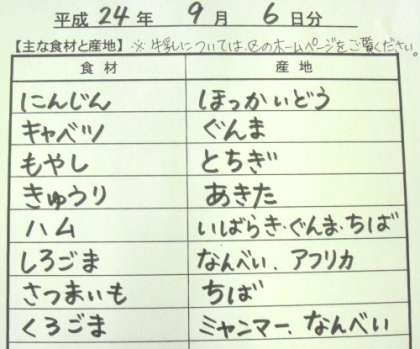 平成 24 年 9 月 6 日分
【主な食材と産地】 ※ 牛乳については、区のホームページをご覧ください。
食材 産地
にんじん ほっかいどう
キャベツ ぐんま
もやし とちぎ
きゅうり あきた
ハム いばらき・ぐんま・ちば
しろごま なんべい、アフリカ
さつまいも ちば
くろごま ミャンマー、なんべい